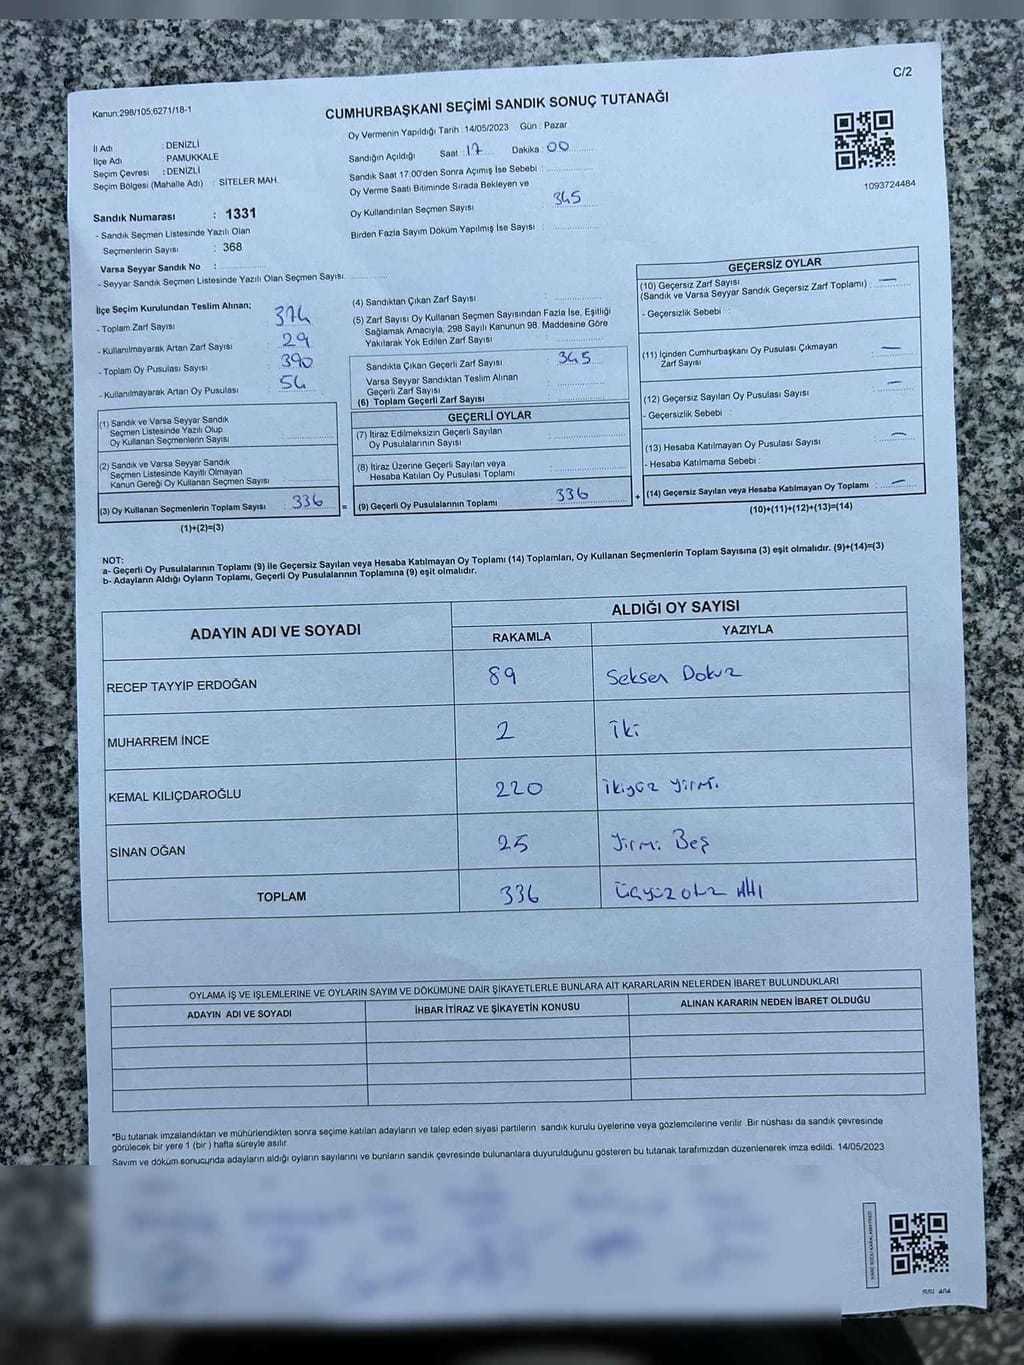 C/2
Kanun;298/105;6271/18-1
CUMHURBAŞKANI SEÇİMİ SANDIK SONUÇ TUTANAĞI
Oy Vermenin Yapıldığı Tarih : 14/05/2023 Gün : Pazar
İl Adı : DENİZLİ
İlçe Adı : PAMUKKALE
Seçim Çevresi : DENİZLİ
Seçim Bölgesi (Mahalle Adı) : SİTELER MAH.
Sandığın Açıldığı Saat : 17 Dakika : 00
Sandık Saat 17.00'den Sonra Açımış İse Sebebi :
Oy Verme Saati Bitiminde Sırada Bekleyen ve
Oy Kullandırılan Seçmen Sayısı : 345
Birden Fazla Sayım Döküm Yapılmış İse Sayısı :
1093724484
Sandık Numarası : 1331
- Sandık Seçmen Listesinde Yazılı Olan
Seçmenlerin Sayısı : 368
Varsa Seyyar Sandık No :
- Seyyar Sandık Seçmen Listesinde Yazılı Olan Seçmen Sayısı:
İlçe Seçim Kurulundan Teslim Alınan;
- Toplam Zarf Sayısı : 374
- Kullanılmayarak Artan Zarf Sayısı : 29
- Toplam Oy Pusulası Sayısı : 390
- Kullanılmayarak Artan Oy Pusulası : 54
(1) Sandık ve Varsa Seyyar Sandık
Seçmen Listesinde Yazılı Olup
Oy Kullanan Seçmenlerin Sayısı :
(2) Sandık ve Varsa Seyyar Sandık
Seçmen Listesinde Kayıtlı Olmayan
Kanun Gereği Oy Kullanan Seçmen Sayısı :
(3) Oy Kullanan Seçmenlerin Toplam Sayısı : 336
(1)+(2)=(3)
(4) Sandıktan Çıkan Zarf Sayısı :
(5) Zarf Sayısı Oy Kullanan Seçmen Sayısından Fazla İse, Eşitliği
Sağlamak Amacıyla, 298 Sayılı Kanunun 98. Maddesine Göre
Yakılarak Yok Edilen Zarf Sayısı :
Sandıkta Çıkan Geçerli Zarf Sayısı : 345
Varsa Seyyar Sandıktan Teslim Alınan
Geçerli Zarf Sayısı :
(6) Toplam Geçerli Zarf Sayısı :
GEÇERLİ OYLAR
(7) İtiraz Edilmeksizin Geçerli Sayılan
Oy Pusulalarının Sayısı :
(8) İtiraz Üzerine Geçerli Sayılan veya
Hesaba Katılan Oy Pusulası Toplamı :
= (9) Geçerli Oy Pusulalarının Toplamı : 336
GEÇERSİZ OYLAR
(10) Geçersiz Zarf Sayısı
(Sandık ve Varsa Seyyar Sandık Geçersiz Zarf Toplamı) : —
- Geçersizlik Sebebi :
(11) İçinden Cumhurbaşkanı Oy Pusulası Çıkmayan
Zarf Sayısı : —
(12) Geçersiz Sayılan Oy Pusulası Sayısı : —
- Geçersizlik Sebebi :
(13) Hesaba Katılmayan Oy Pusulası Sayısı : —
- Hesaba Katılmama Sebebi :
+ (14) Geçersiz Sayılan veya Hesaba Katılmayan Oy Toplamı : —
(10)+(11)+(12)+(13)=(14)
NOT:
a- Geçerli Oy Pusulalarının Toplamı (9) ile Geçersiz Sayılan veya Hesaba Katılmayan Oy Toplamı (14) Toplamları, Oy Kullanan Seçmenlerin Toplam Sayısına (3) eşit olmalıdır. (9)+(14)=(3)
b- Adayların Aldığı Oyların Toplamı, Geçerli Oy Pusulalarının Toplamına (9) eşit olmalıdır.
ADAYIN ADI VE SOYADI ALDIĞI OY SAYISI
RAKAMLA YAZIYLA
RECEP TAYYİP ERDOĞAN 89 Seksen Dokuz
MUHARREM İNCE 2 İki
KEMAL KILIÇDAROĞLU 220 İkiyüz yirmi
SİNAN OĞAN 25 Yirmi Beş
TOPLAM 336 Üçyüz otuz Altı
OYLAMA İŞ VE İŞLEMLERİNE VE OYLARIN SAYIM VE DÖKÜMÜNE DAİR ŞİKAYETLERLE BUNLARA AİT KARARLARIN NELERDEN İBARET BULUNDUKLARI
ADAYIN ADI VE SOYADI İHBAR İTİRAZ VE ŞİKAYETİN KONUSU ALINAN KARARIN NEDEN İBARET OLDUĞU
*Bu tutanak imzalandıktan ve mühürlendikten sonra seçime katılan adayların ve talep eden siyasi partilerin sandık kurulu üyelerine veya gözlemcilerine verilir. Bir nüshası da sandık çevresinde
görülecek bir yere 1 (bir) hafta süreyle asılır.
Sayım ve döküm sonucunda adayların aldığı oyların sayılarını ve bunların sandık çevresinde bulunanlara duyurulduğunu gösteren bu tutanak tarafımızdan düzenlenerek imza edildi. 14/05/2023